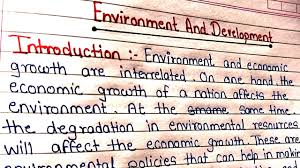 Environment And Development
Introduction :- Environment and economic
growth are interrelated. On one hand the
economic growth of a nation affects the
environment. At the same time
the degradation in environmental resources
will affect the economic growth. These are
environmental policies that can help in making